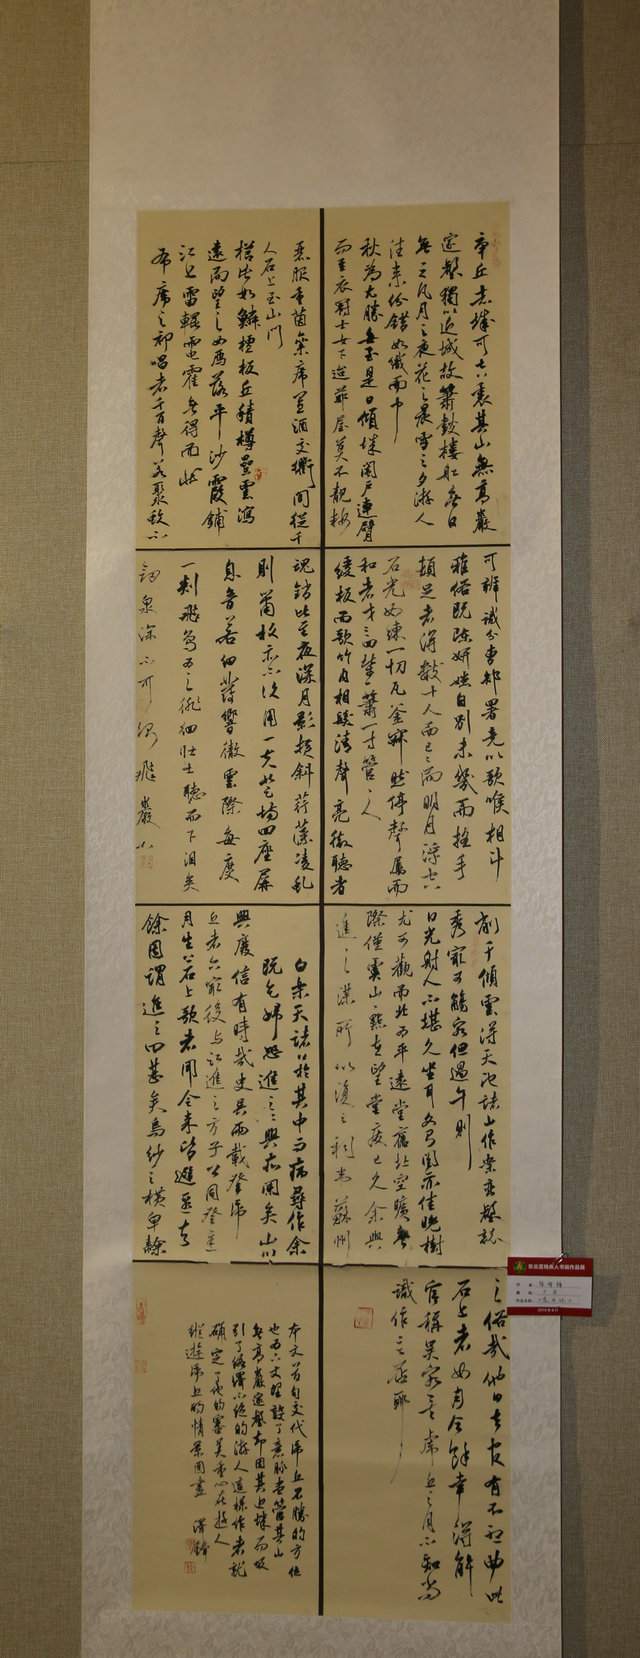 虎丘去城可七八里其山無高巖
邃壑獨以近城故簫鼓樓船無日
無之凡月之夜花之晨雪之夕游人
往来紛錯如織而中
秋為尤勝每至是日傾城闔戶連臂
而至衣冠士女下迨蔀屋莫不靚粧
麗服重茵纍席置酒交衢間從千
人石上至山門
櫛比如鱗檀板丘積樽罍雲瀉
遠而望之如雁落平沙霞鋪
江上雷輥電霍無得而狀
布席之初唱者千百聲若聚蚊不
可辨識分曹部署竞以歌喉相斗
雅俗既陈妍媸自别未幾而摇手
頓足者得數十人而已已而明月浮空
石光如煉一切瓦釜寂然停聲屬而
和者才三四輩一簫一寸管一人
緩板而歌竹肉相發清聲亮徹聽者
魂銷比至夜深月影横斜荇藻凌乱
則簫板亦不復用一夫登場四座屏
息音若细髮響徹雲際每度
一刻飛鳥為之徘徊壮士聽而下泪矣
劍泉深不可測飛巖如
削千傾雲得天池諸山作案峦壑競
秀最可觴客但過午則
日光射人不堪久坐耳文昌阁亦佳晚樹
尤可觀而北為平遠堂舊址空曠無
際僅虞山一點在望堂廢已久余與
進之謀所以復之祠韋蘇州
白樂天諸公於其中而病尋作余
既乞歸恐進之之興亦闌矣山川
興廢信有時哉吏吴兩載登虎
丘者六最後与江進之方子公同登遲
月生公石上歌者聞令来皆避匿去
餘因謂進之曰甚矣烏紗之横皁隸
之俗哉他日去官有不聽曲此
石上者如月今餘幸得解
官稱吴客矣虎丘之月不知尚
識余言否耶
本文首句交代虎丘名勝的方位
埋設了意脈其山
無高巖邃壑却因其近城而吸
引了络绎不绝的游人這樣作者就
确定了的審美重心在游人
縱遊虎丘的情景圖畫 澤鋒
残疾人书画作品展